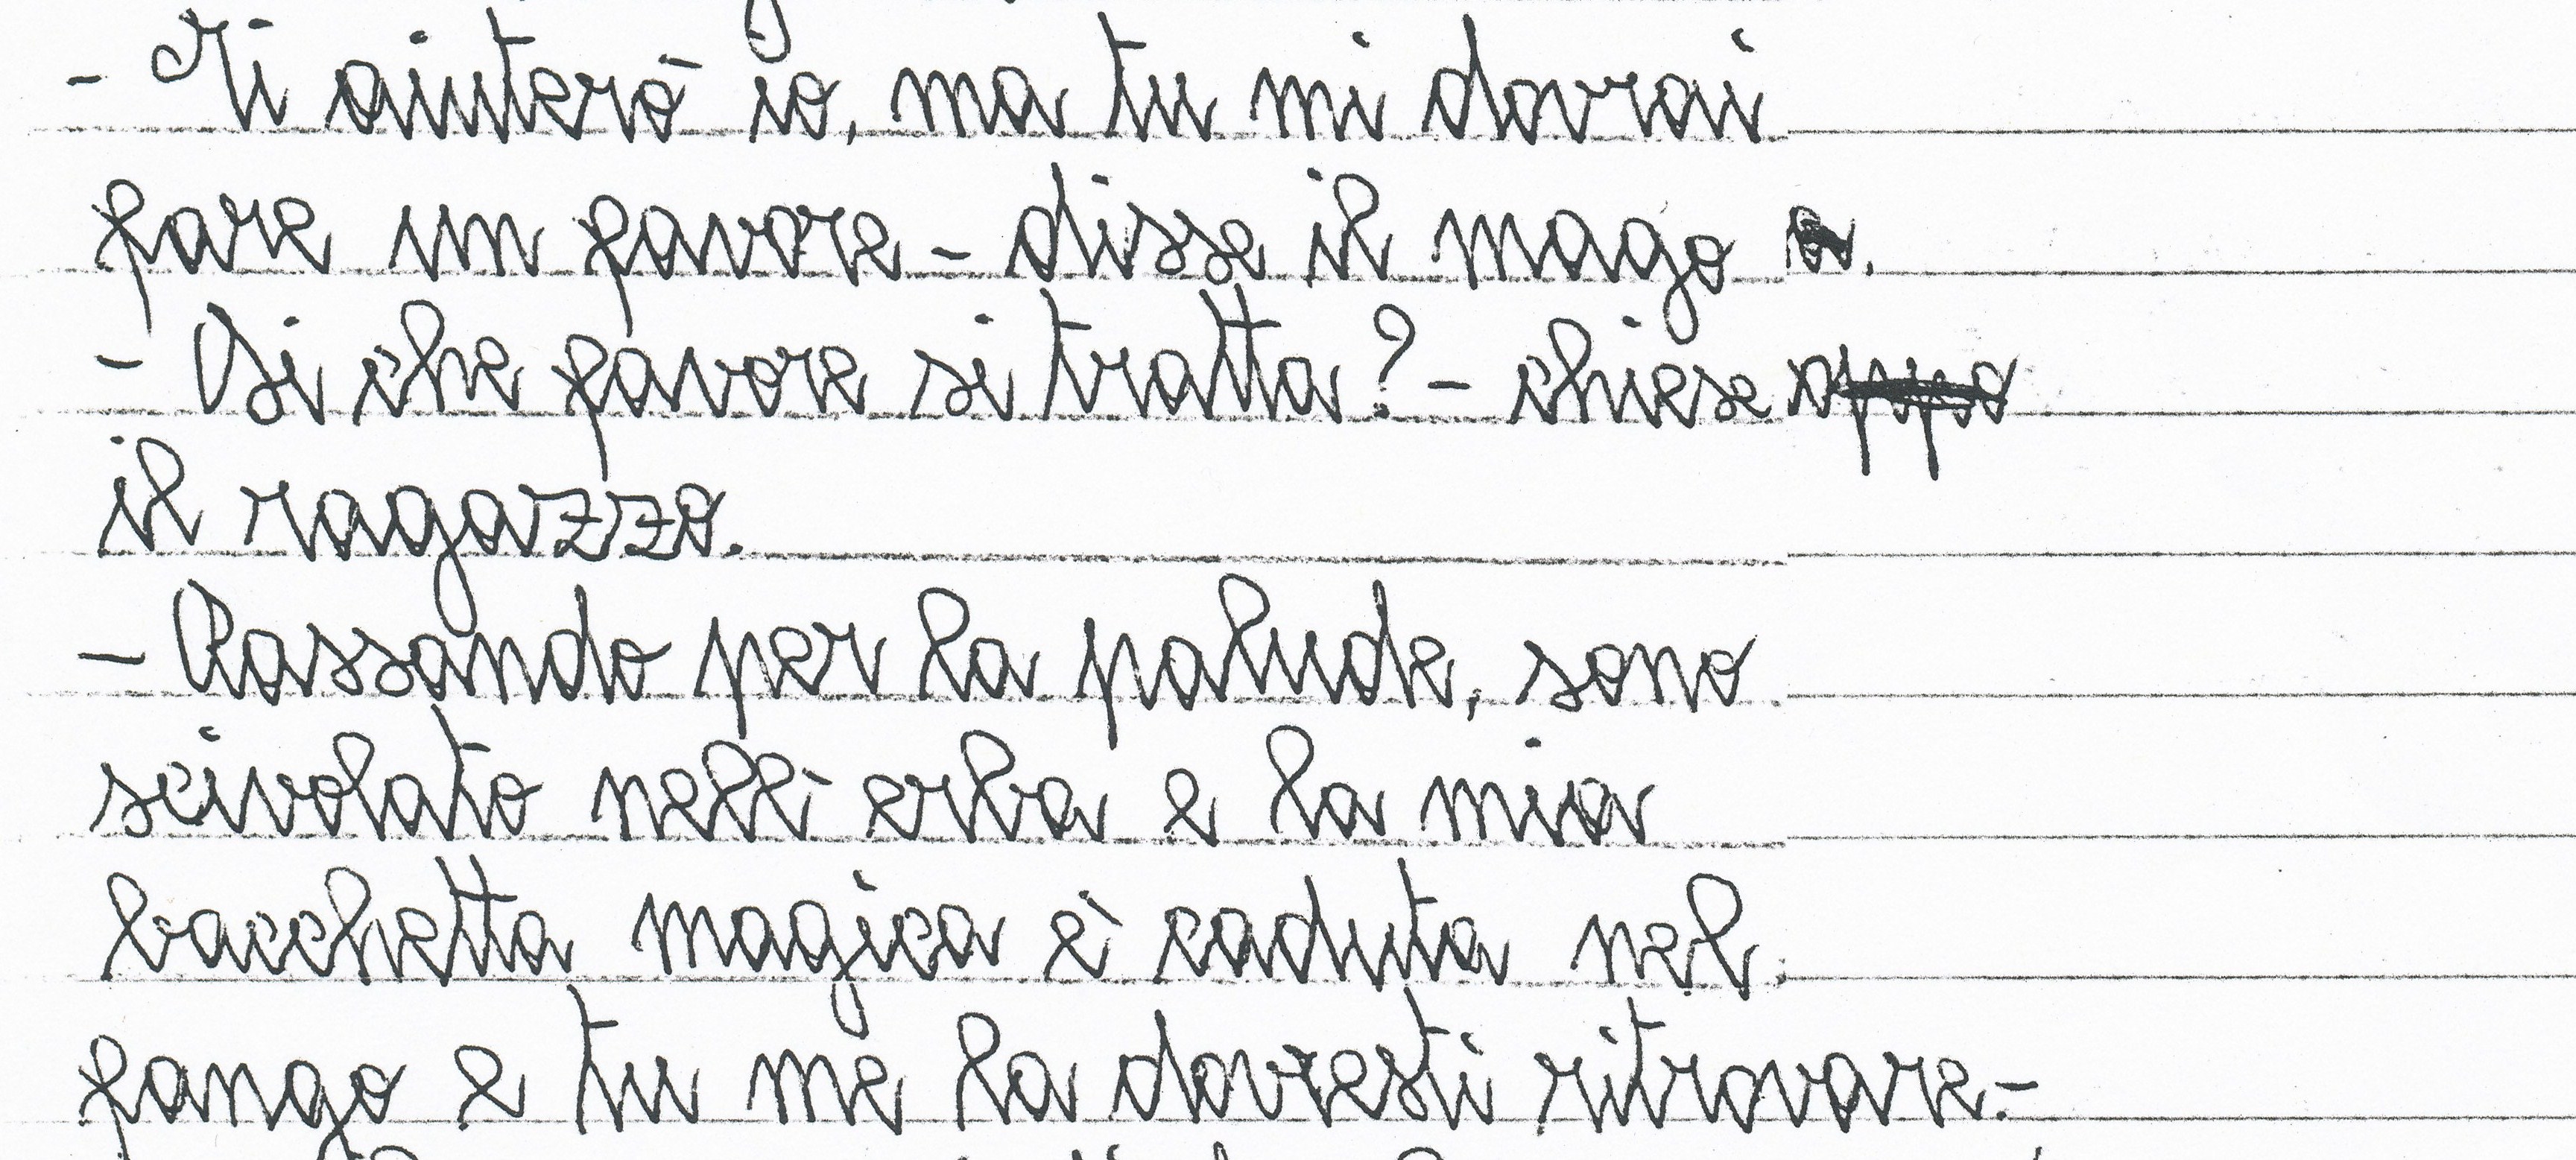 - Ti aiuterò io, ma tu mi dovrai
fare un favore - disse il mago .
- Di che favore si tratta? - chiese
il ragazzo.
- Passando per la palude, sono
scivolato nell' erba e la mia
bacchetta magica è caduta nel
fango e tu me la dovresti ritrovare.-